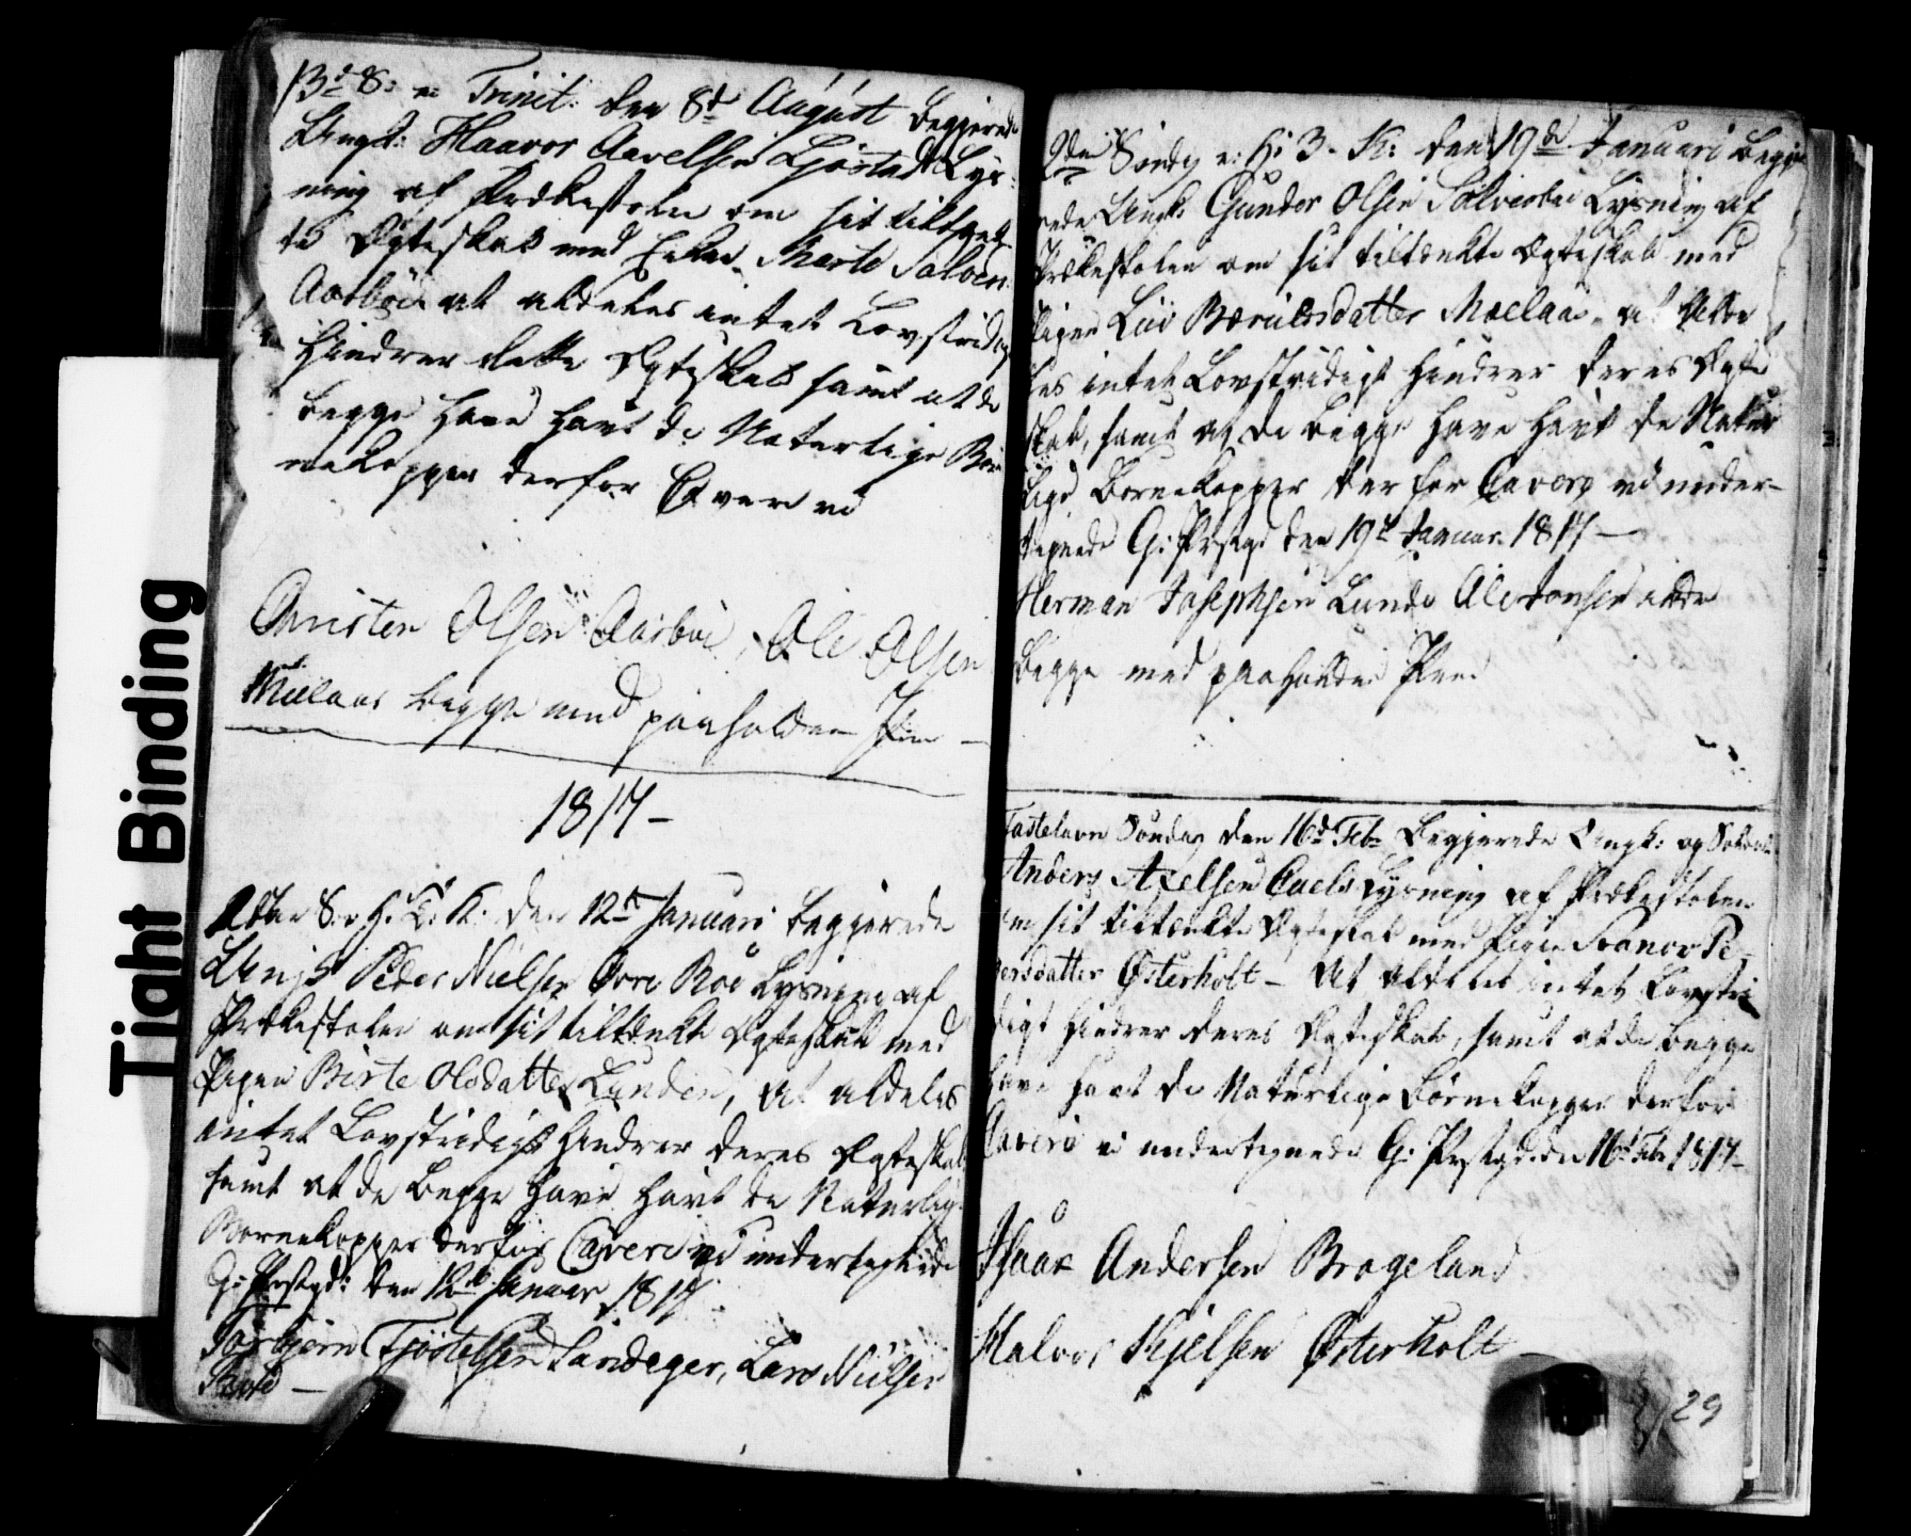 Tight Binding
13de S: e: Trinit: den 8d August Begjerede
Ungk: Haavor Aavelsen Ljøstad Lys-
ning af Prækestolen om sit tiltænk-
te Ægteskab med Enken Marte Salves
Aasbøe at aldeles intet Lovstridig
Hindrer dette Ægteskab samt at de
begge Have Havt de Naturlige Bør
nekopper derfor Cavere vi
Christen Olsen Aasbøe, Ole Olsen
Mælaas begge med paaholden Pen —
1817 —
den 12te Januari begjerede
Ungk Peder Nielsen Øvre Bøe Lysning af
Prækestolen om sit tiltænkte Ægteskab med
Pigen Birte Olsdatter Lunden, at aldeles
intet Lovstridigt Hindrer deres Ægteskab
samt at de begge Have Havt de Naturlig
Børnekopper derfor Cavere vi undertegnede
G: Prstgd: den 12te Januar 1817.
Torbjørn Tjøstelsen Landeger, Lars Nielsen
2den Søndg e: H: 3. K: den 19de Januari Begje
rede Ungk: Gunder Olsen Lysning af
Prækestolen om sit tiltænkte Ægteskab med
Pigen Liv Berulsdatter Moelaa at Alde
les intet Lovstridigt Hindrer deres Ægte
skab, samt at de begge Have Havt de Natur
lige Børnekopper derfor Cavere vi under-
tegnede G: Prstgd den 19d Januar. 1817 —
Herman Josephsen Lunde Ole Jonsen
begge med paaholden Pen
Fastelavn Søndag den 16d Feb: Begjerede Ungk: og
Anders Axelsen Lysning af Prækestolen
om sit tiltænkte Ægteskab med Pigen Pe-
dersdatter Østerholt — At Aldeles intet Lovstri
digt Hindrer deres Ægteskab, samt at de begge
Have Havt de Naturlige Børnekopper derfor
Cavere vi undertegnede G: Prstgd: den 16d Feb 1817 —
Isaac Andersen Brogeland
Halvor Kjelsen Østerholt —
29